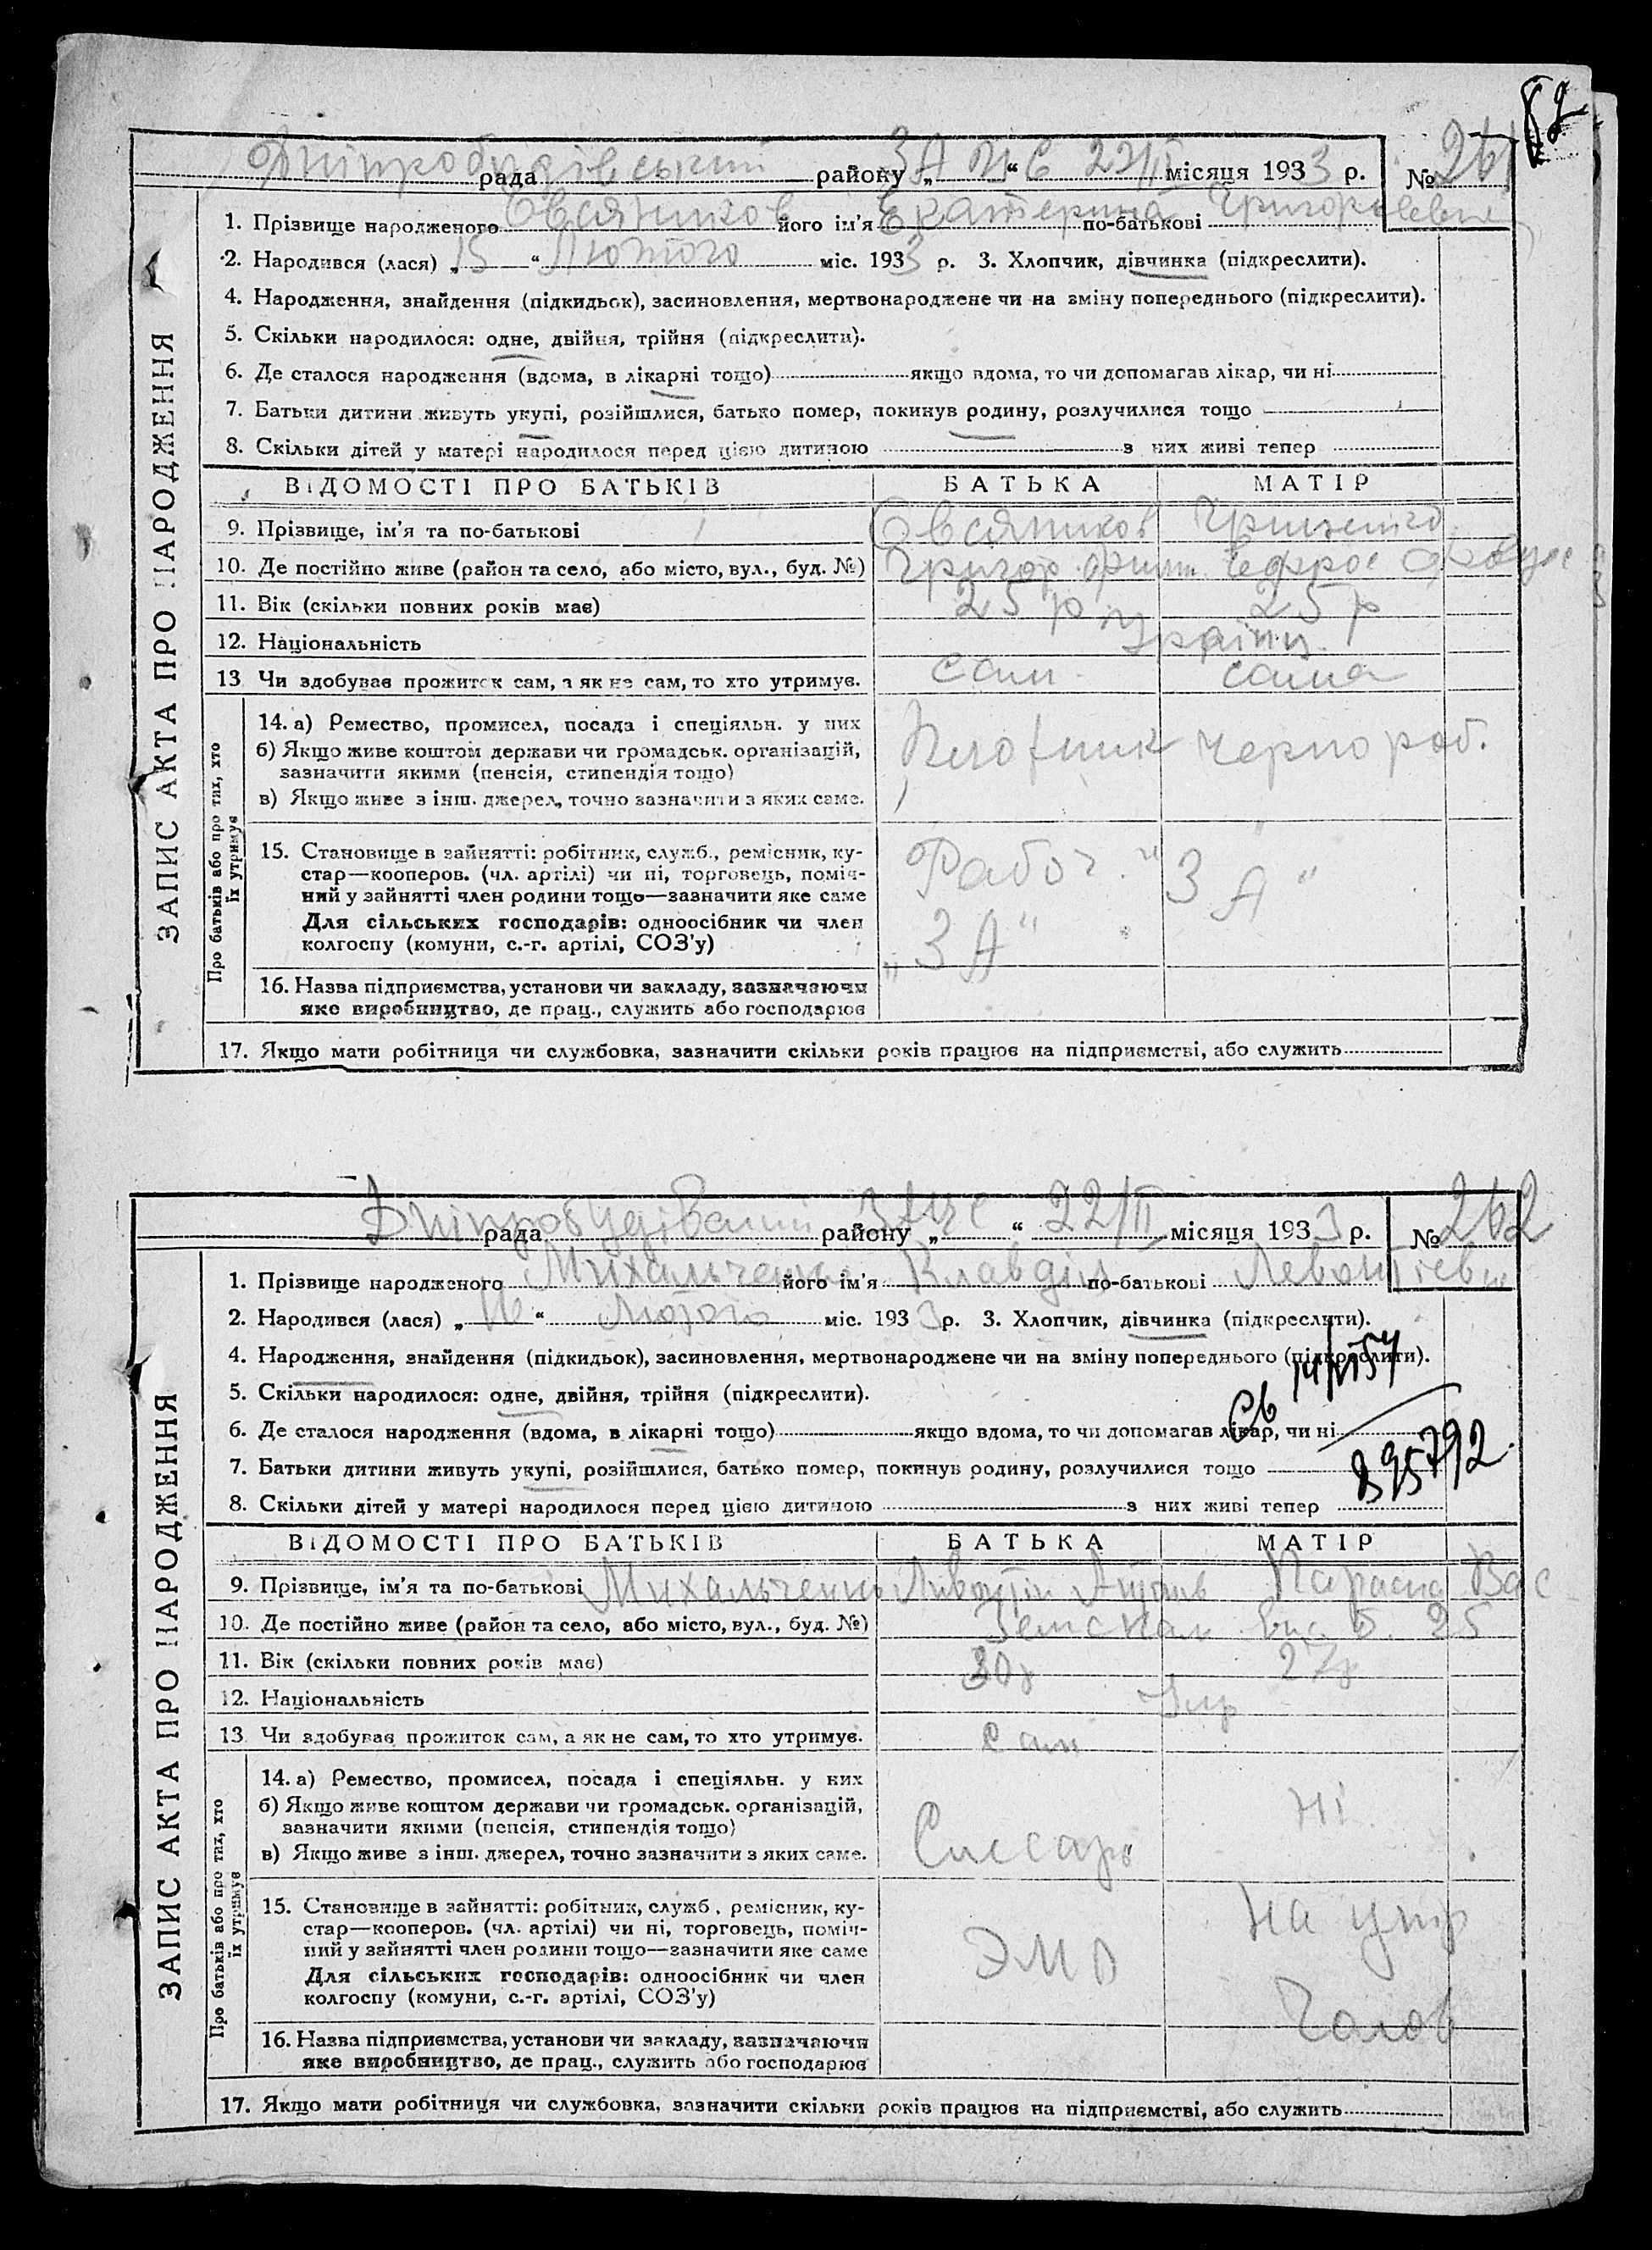 82
Дніпробудівський рада району „ ЗАГС “ 22/II місяця 1933 р. № 261
1. Прізвище народженого Овсянников його ім'я Екатерина по-батькові Григорьевна
2. Народився (лася) „ 15 “ Лютого міс. 1933 р. 3. Хлопчик, дівчинка (підкреслити).
4. Народження, знайдення (підкидьок), засиновлення, мертвонароджене чи на зміну попереднього (підкреслити).
5. Скільки народилося: одне, двійня, трійня (підкреслити).
6. Де сталося народження (вдома, в лікарні тощо) якщо вдома, то чи допомагав лікар, чи ні
7. Батьки дитини живуть укупі, розійшлися, батько помер, покинув родину, розлучилися тощо
8. Скільки дітей у матері народилося перед цією дитиною з них живі тепер
ВІДОМОСТІ ПРО БАТЬКІВ БАТЬКА МАТІР
9. Прізвище, ім'я та по-батькові Овсянников
10. Де постійно живе (район та село, або місто, вул., буд. №) Григор
11. Вік (скільки повних років має) 25 р 25 р
12. Національність Україн.
13 Чи здобуває прожиток сам, а як не сам, то хто утримує. сам сама
14. а) Ремество, промисел, посада і спеціяльн. у них
б) Якщо живе коштом держави чи громадськ. організацій,
зазначити якими (пенсія, стипендія тощо)
Плотник чернораб.
в) Якщо живе з інш. джерел, точно зазначити з яких саме.
15. Становище в зайнятті: робітник, служб., ремісник, ку-
стар—кооперов. (чл. артілі) чи ні, торговець, поміч-
ний у зайнятті член родини тощо—зазначити яке саме
Рабоч. "ЗА"
Для сільських господарів: одноосібник чи член
колгоспу (комуни, с.-г. артілі, СОЗ'у)
„ЗА"
16. Назва підприємства, установи чи закладу, зазначаючи
яке виробництво, де прац., служить або господарює
17. Якщо мати робітниця чи службовка, зазначити скільки років працює на підприємстві, або служить
ЗАПИС АКТА ПРО НАРОДЖЕННЯ
Про батьків або про тих, хто
їх утримує
рада району „ ЗАГС “ 22/II місяця 1933 р. № 262
1. Прізвище народженого Михальченко його ім'я Клавдія по-батькові
2. Народився (лася) „ “ Лютого міс. 1933 р. 3. Хлопчик, дівчинка (підкреслити).
4. Народження, знайдення (підкидьок), засиновлення, мертвонароджене чи на зміну попереднього (підкреслити).
5. Скільки народилося: одне, двійня, трійня (підкреслити).
6. Де сталося народження (вдома, в лікарні тощо) якщо вдома, то чи допомагав лікар, чи ні
Св
895792
7. Батьки дитини живуть укупі, розійшлися, батько помер, покинув родину, розлучилися тощо
8. Скільки дітей у матері народилося перед цією дитиною з них живі тепер
ВІДОМОСТІ ПРО БАТЬКІВ БАТЬКА МАТІР
9. Прізвище, ім'я та по-батькові Михальченко Параска Вас
10. Де постійно живе (район та село, або місто, вул., буд. №) б. 25
11. Вік (скільки повних років має) 30р 27р
12. Національність Укр
13. Чи здобуває прожиток сам, а як не сам, то хто утримує. сам
14. а) Ремество, промисел, посада і спеціяльн. у них
б) Якщо живе коштом держави чи громадськ. організацій,
зазначити якими (пенсія, стипендія тощо)
Ні
в) Якщо живе з інш. джерел, точно зазначити з яких саме.
Слесарь
15. Становище в зайнятті: робітник, служб., ремісник, ку-
стар—кооперов. (чл. артілі) чи ні, торговець, поміч-
ний у зайнятті член родини тощо—зазначити яке саме
на утр
Для сільських господарів: одноосібник чи член
колгоспу (комуни, с.-г. артілі, СОЗ'у)
Чолов
16. Назва підприємства, установи чи закладу, зазначаючи
яке виробництво, де прац., служить або господарює
17. Якщо мати робітниця чи службовка, зазначити скільки років працює на підприємстві, або служить
ЗАПИС АКТА ПРО НАРОДЖЕННЯ
Про батьків або про тих, хто
їх утримує